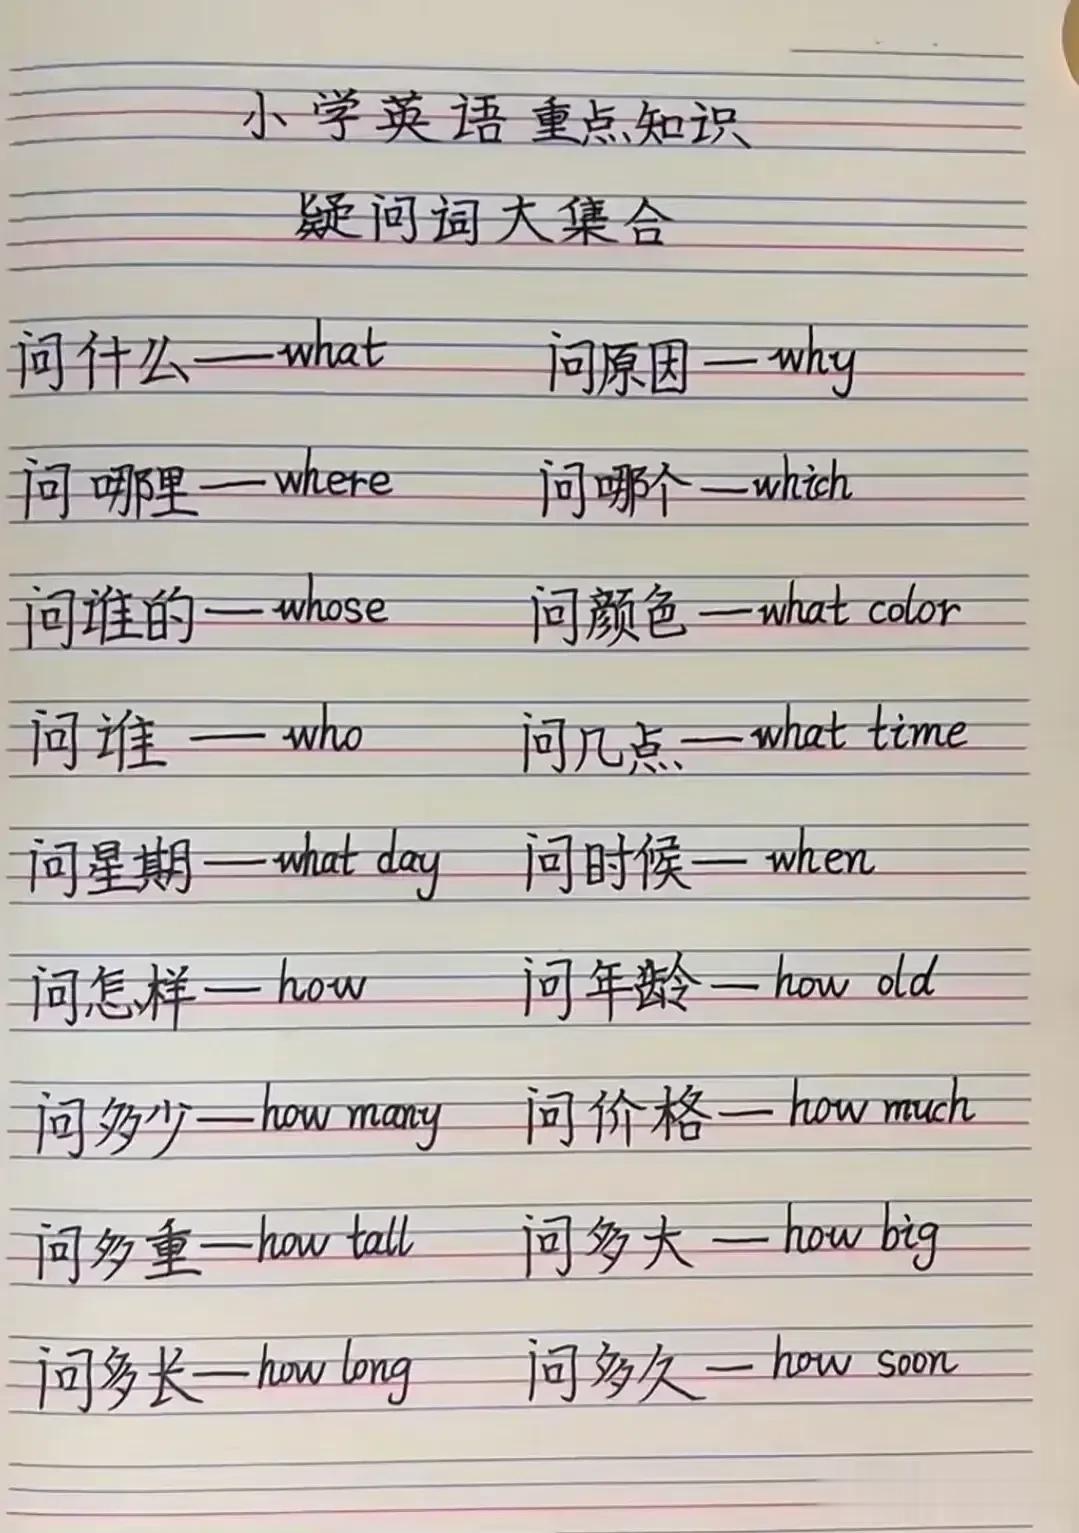 小学英语重点知识
疑问词大集合
问什么——what 问原因—why
问哪里—where 问哪个—which
问谁的—whose 问颜色—what color
问谁——who 问几点—what time
问星期—what day 问时候—when
问怎样—how 问年龄—how old
问多少—how many 问价格—how much
问多重—how tall 问多大—how big
问多长—how long 问多久—how soon